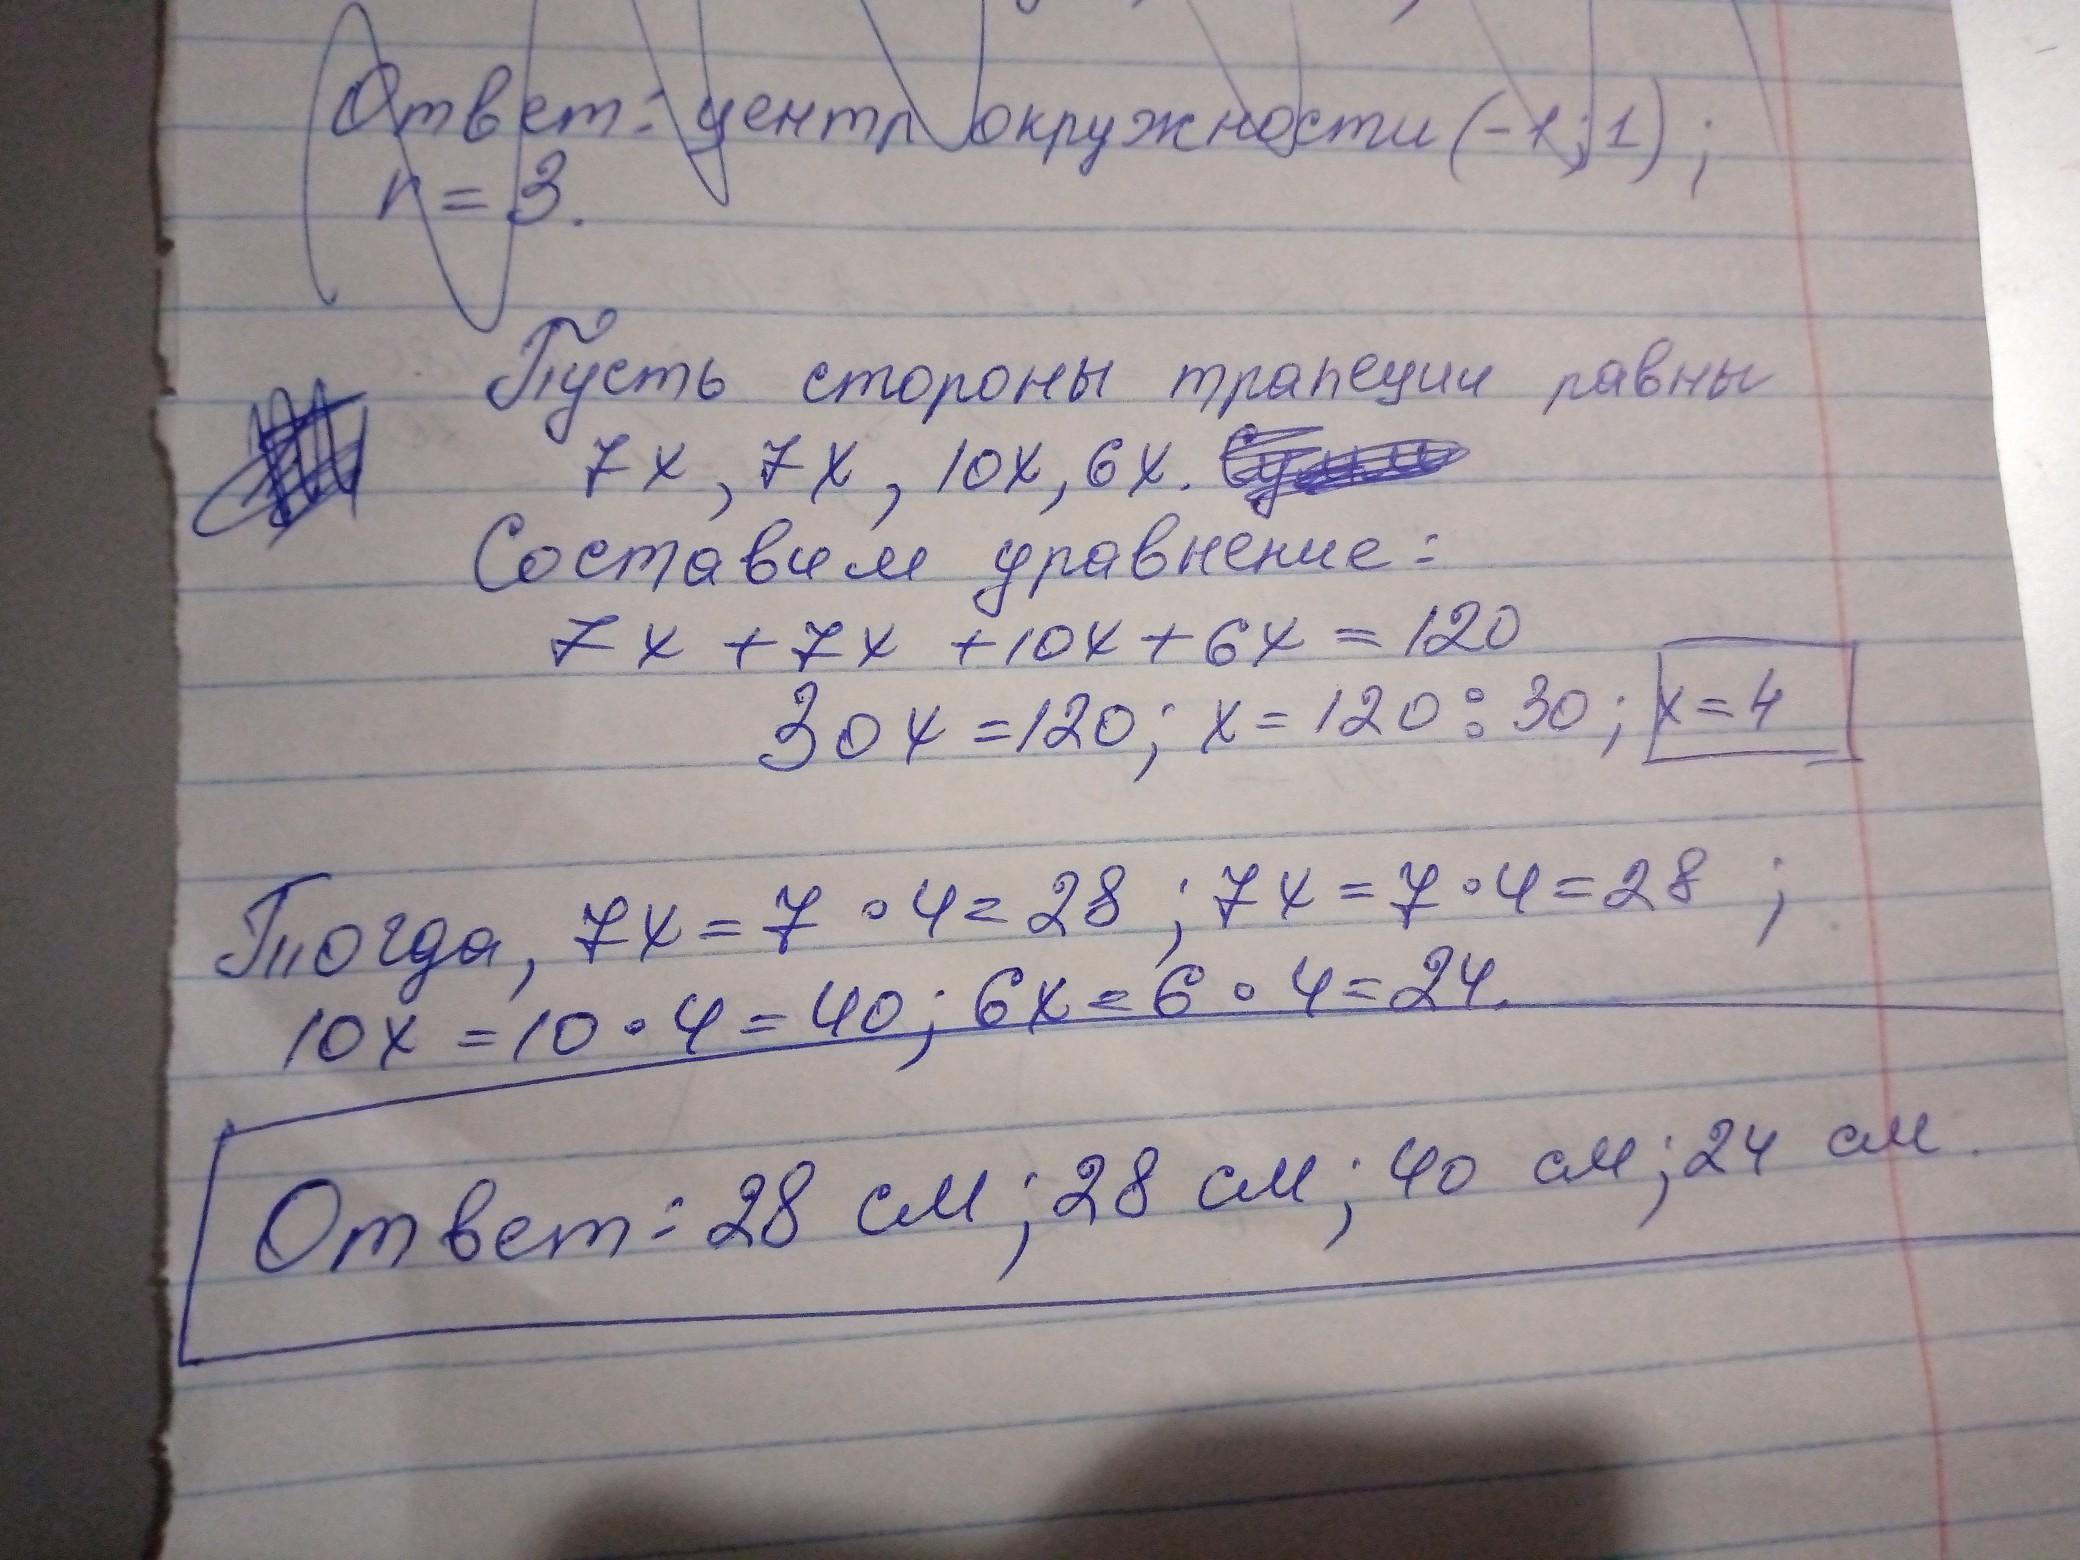 Ответ: центр окружности (-1; 1);
r = 3.
Пусть стороны трапеции равны
7x, 7x, 10x, 6x.
Составим уравнение:
7x + 7x + 10x + 6x = 120
30x = 120; x = 120 : 30; x = 4
Тогда, 7x = 7 • 4 = 28; 7x = 7 • 4 = 28;
10x = 10 • 4 = 40; 6x = 6 • 4 = 24.
Ответ: 28 см; 28 см; 40 см; 24 см.